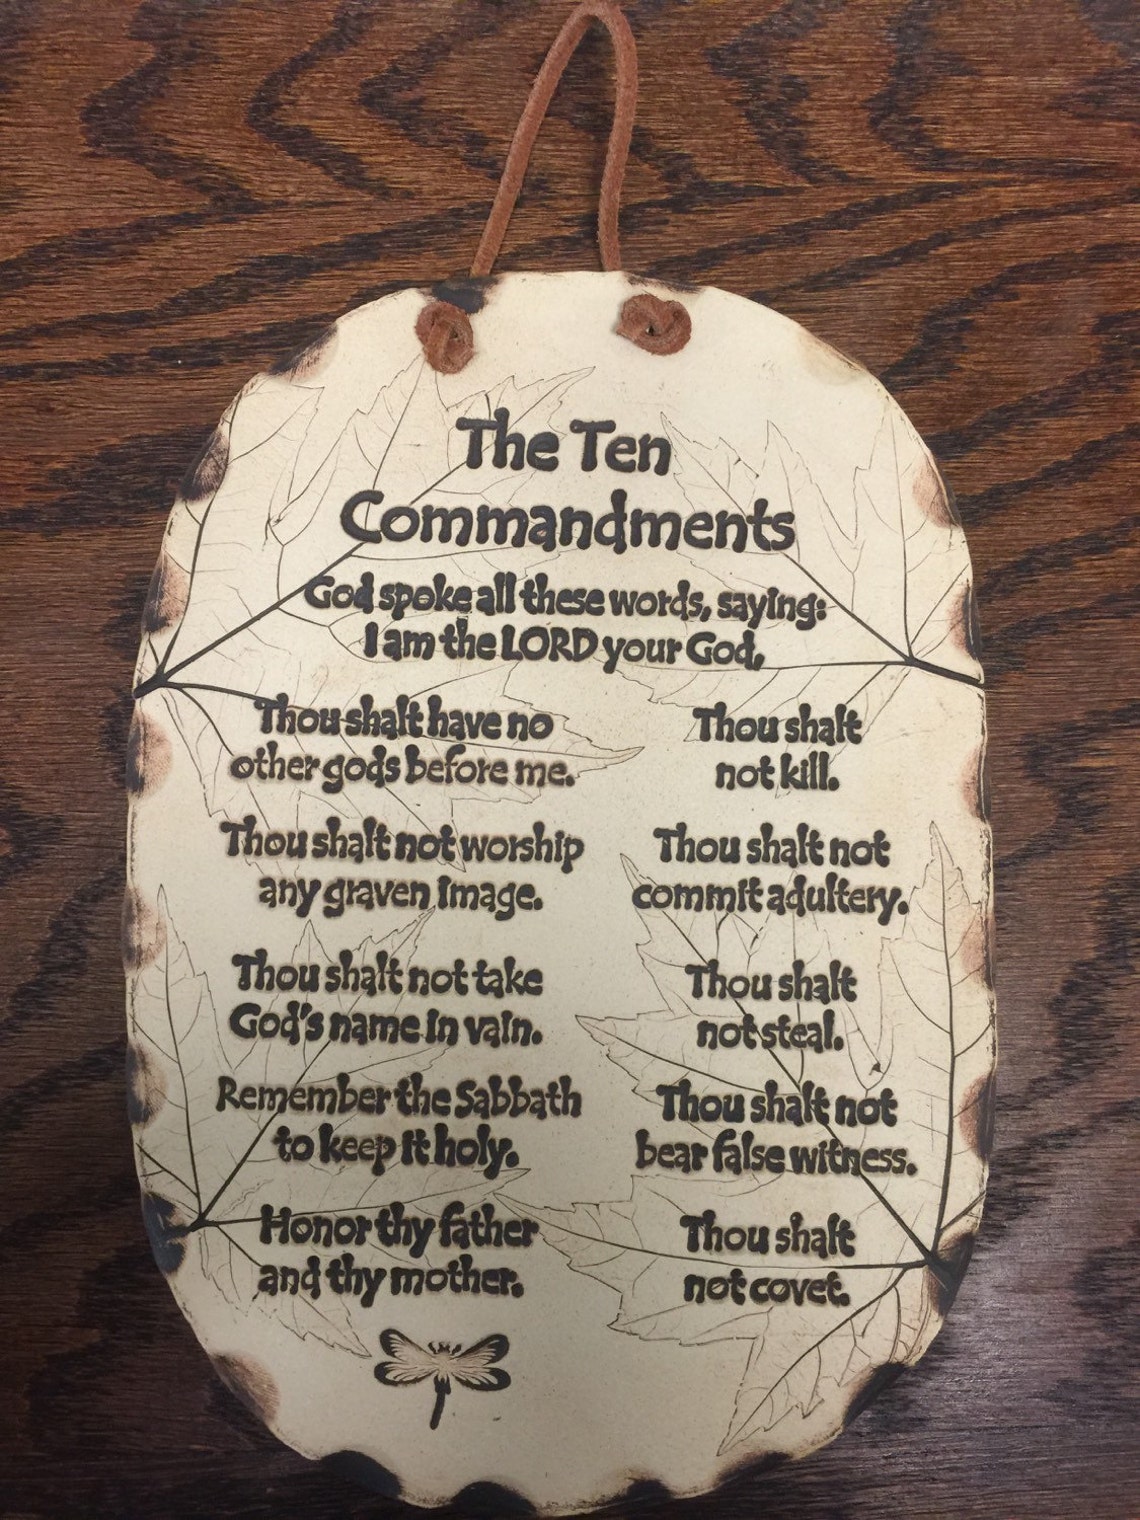 The Ten
Commandments
God spoke all these words, saying:
I am the LORD your God,
Thou shalt have no
other gods before me.
Thou shalt not worship
any graven image.
Thou shalt not take
God's name in vain.
Remember the Sabbath
to keep it holy.
Honor thy father
and thy mother.
Thou shalt
not kill.
Thou shalt not
commit adultery.
Thou shalt
not steal.
Thou shalt not
bear false witness.
Thou shalt
not covet.